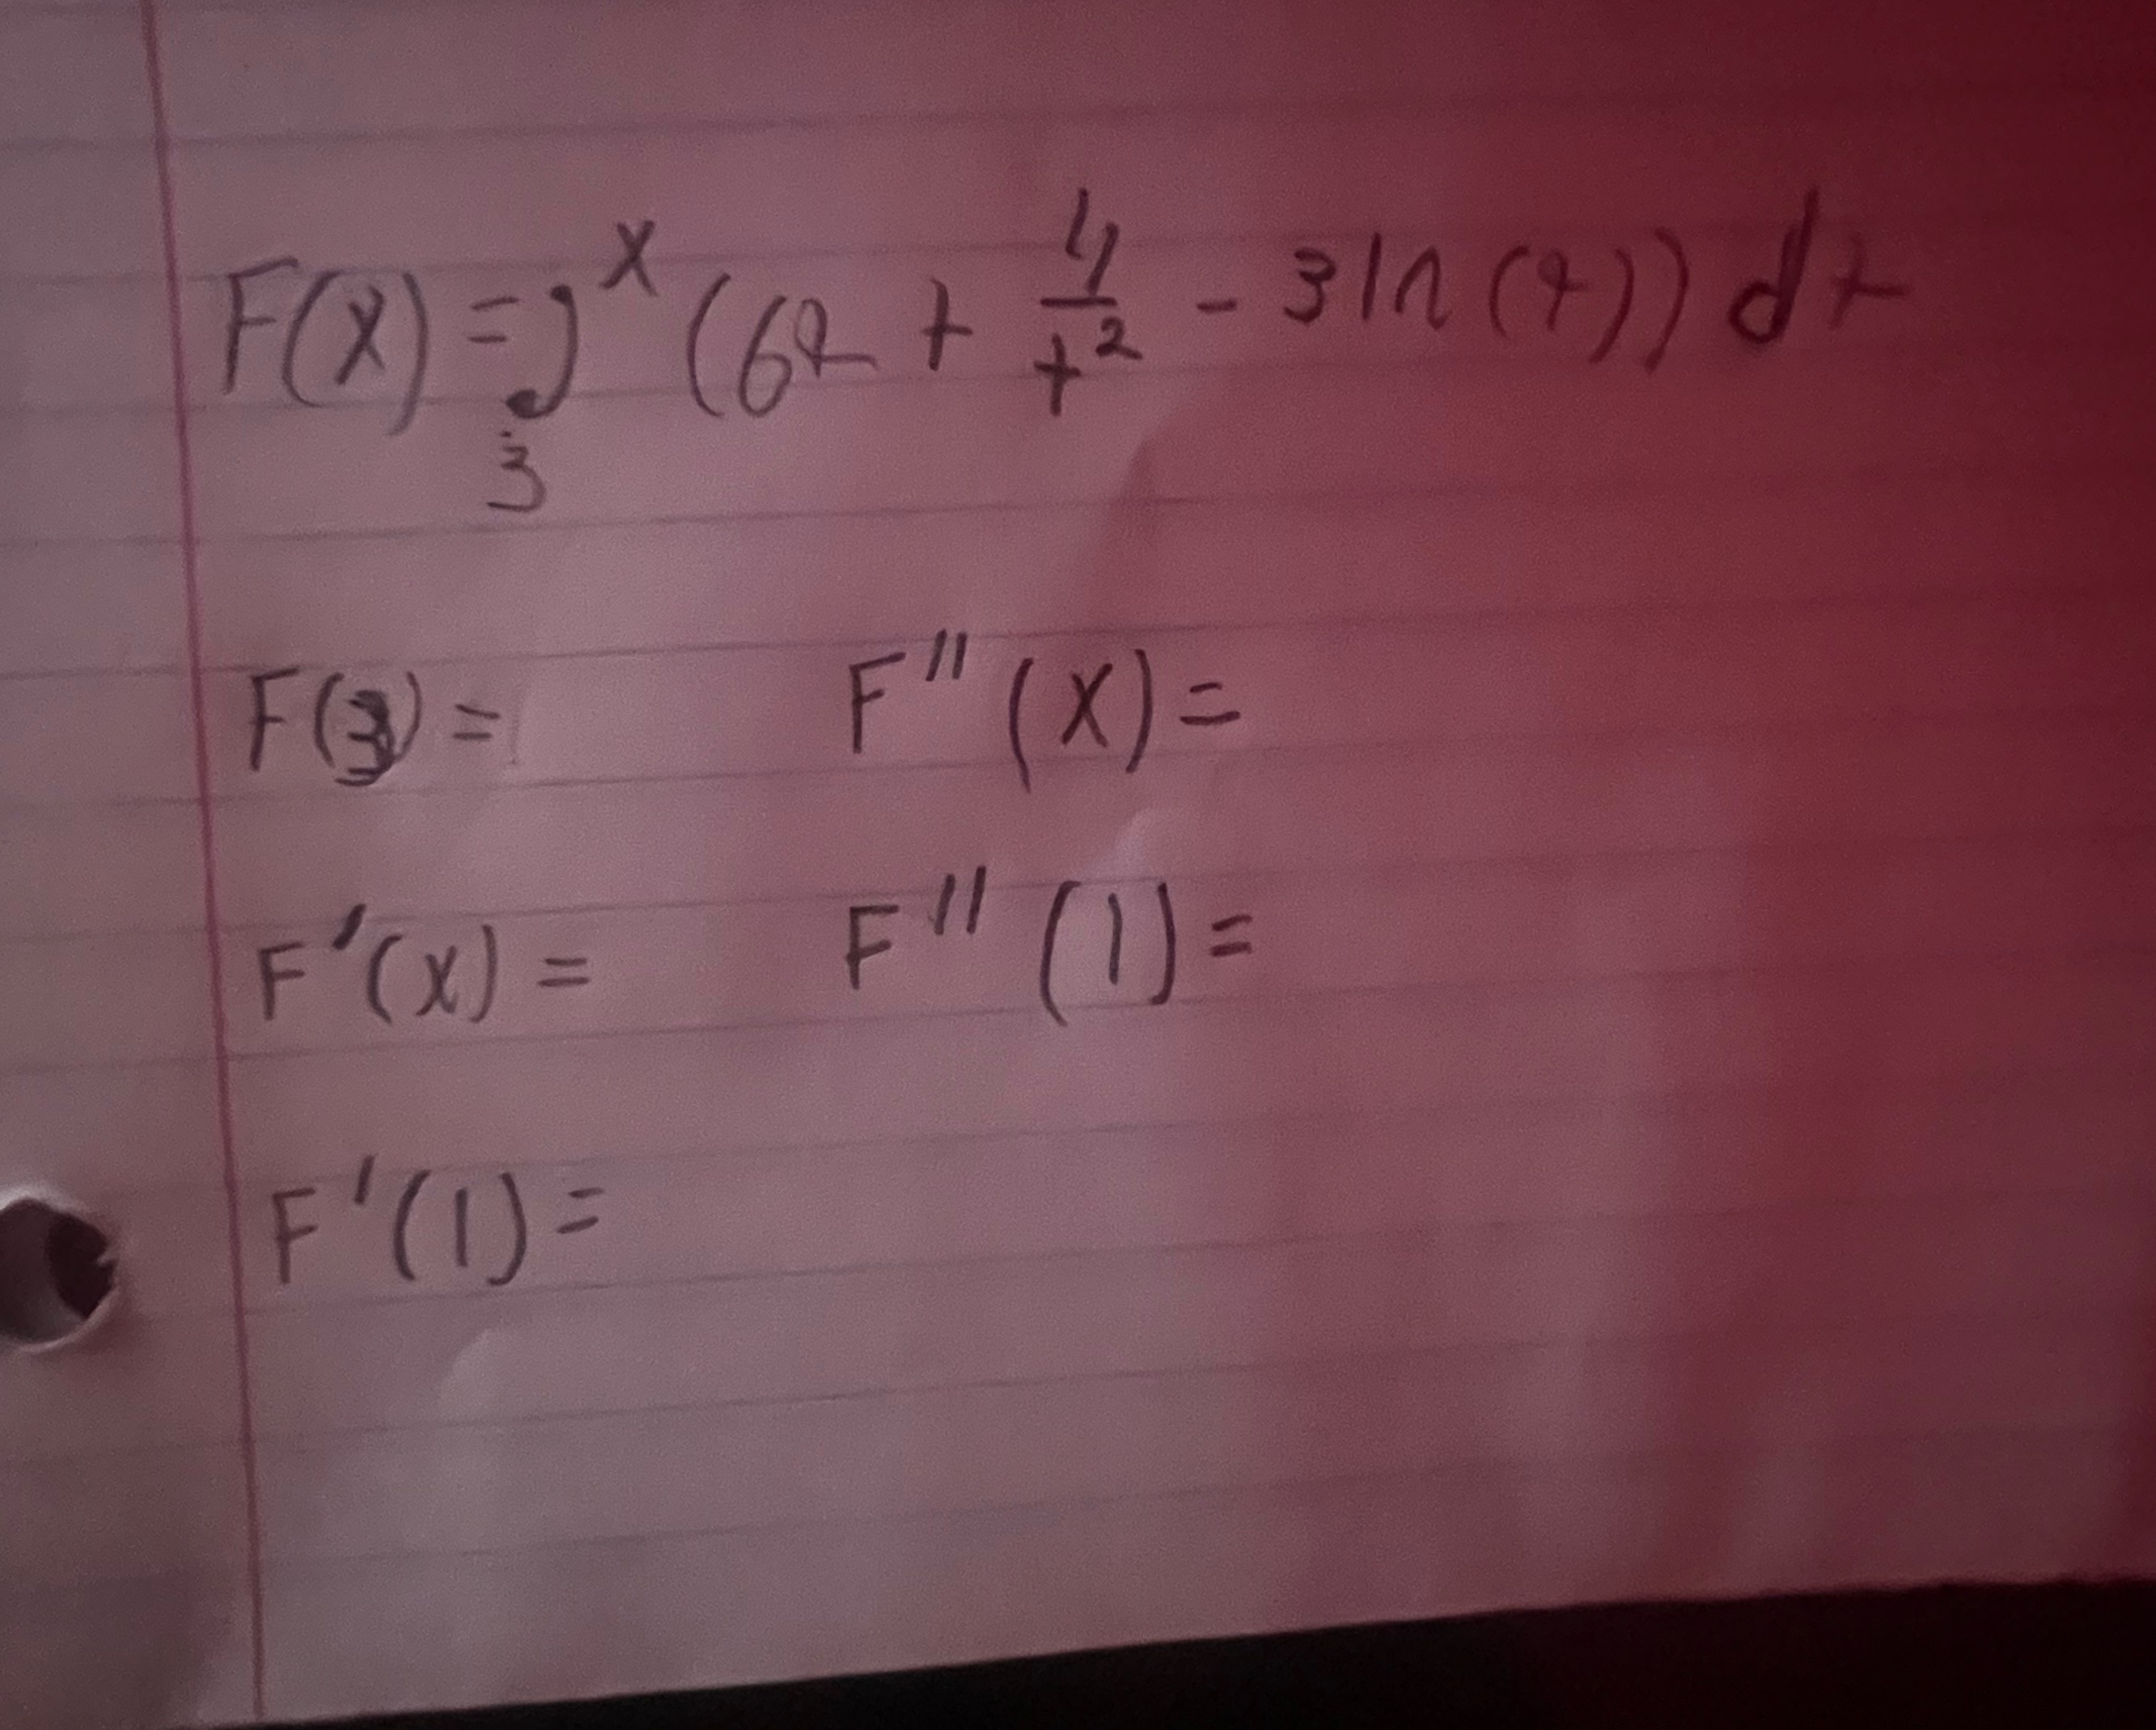 F(x) = ∫₃ˣ (6t + 4/t² - 3ln(t)) dt
F(3) = F''(x) =
F'(x) = F''(1) =
F'(1) =